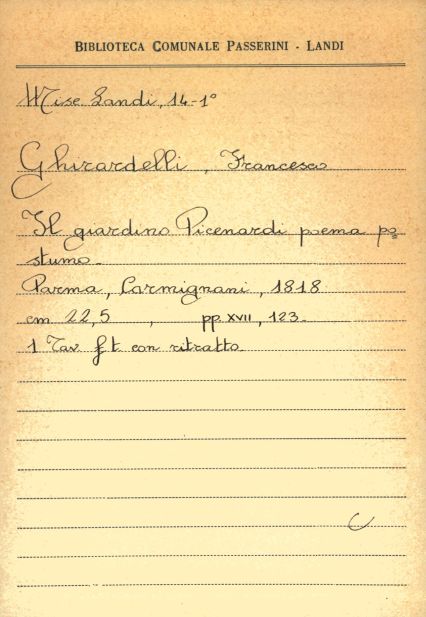 BIBLIOTECA COMUNALE PASSERINI - LANDI
Misc Landi, 14-1°
Ghirardelli, Francesco
Il giardino Picenardi poema po=
stumo.
Parma, Carmignani, 1818
cm 22,5 , pp. XVII, 123.
1 Tav f t con ritratto.
C